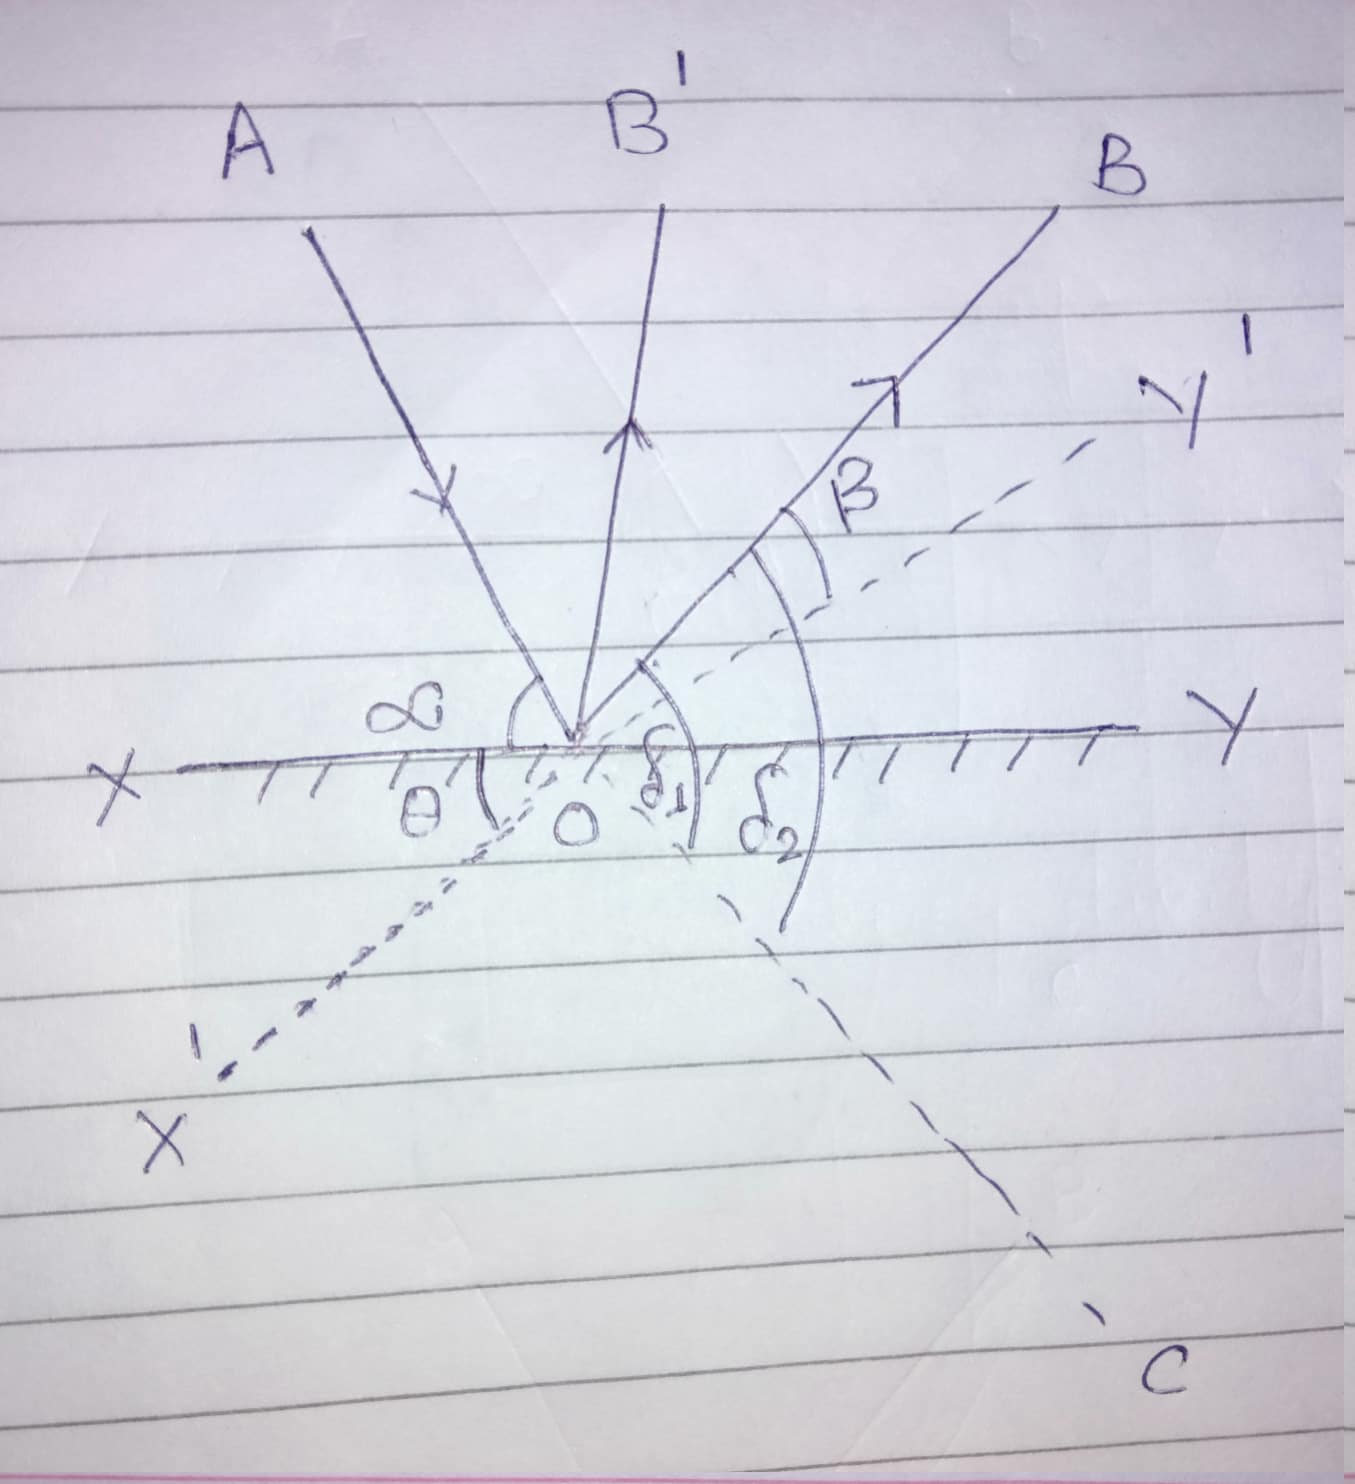 A B' B
Y'
β
α
X Y
θ O δ1 δ2
X'
C